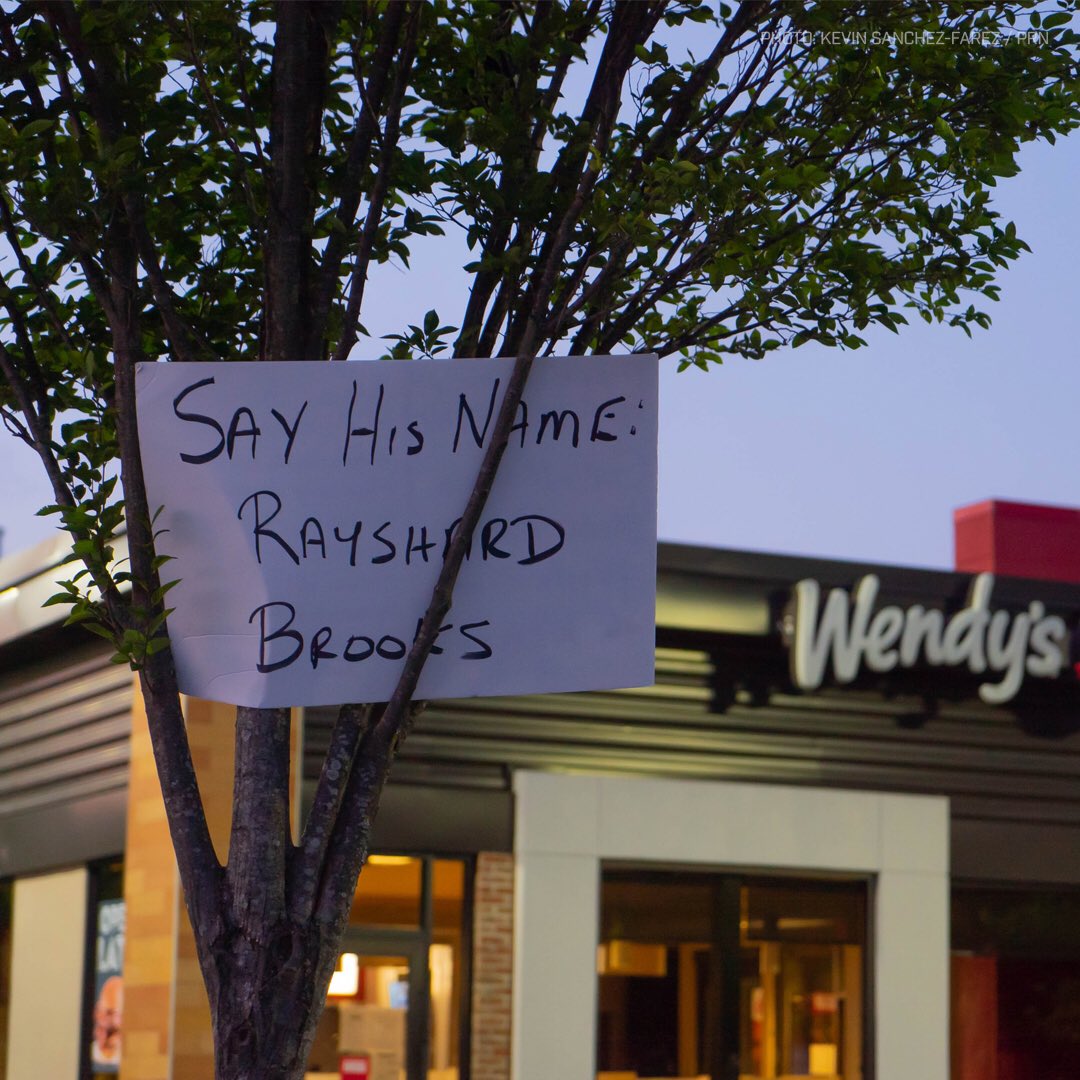 PHOTO: KEVIN SANCHEZ-FAREZ / PRN
SAY HIS NAME:
RAYSHARD
BROOKS
Wendy's